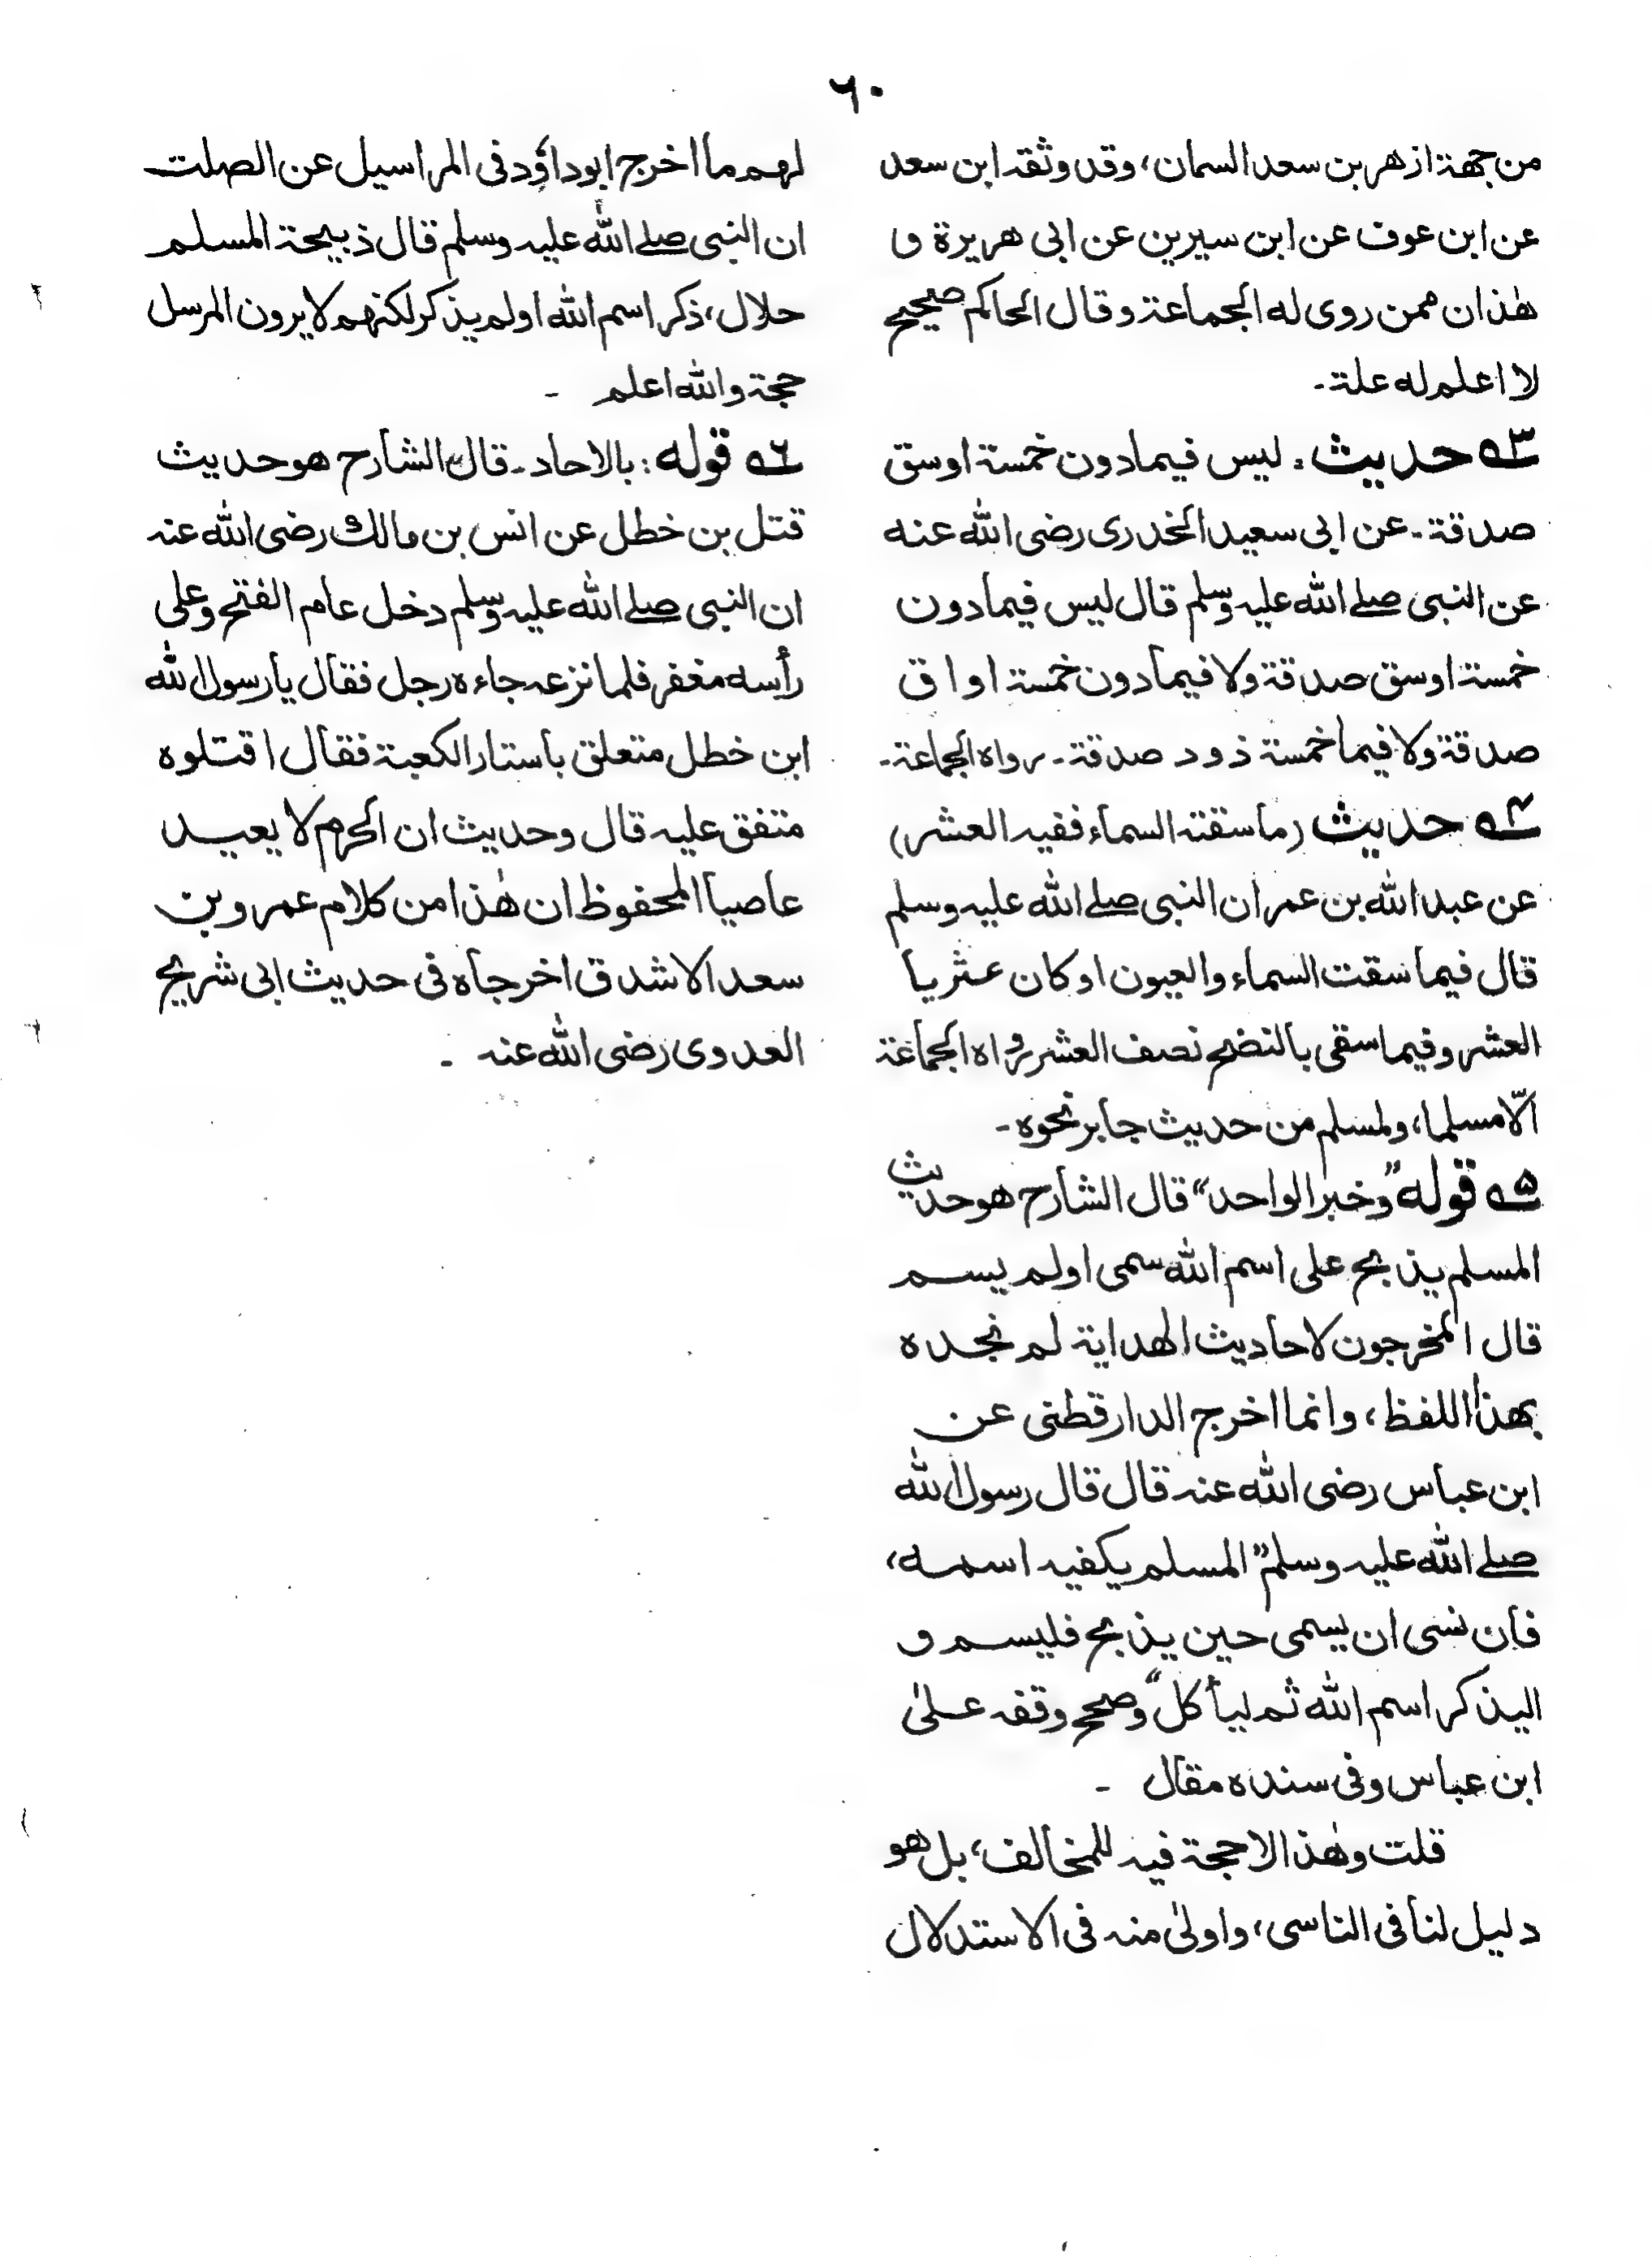 ٦٠
من جهة ازهر بن سعد السمان، وقد وثقه ابن سعد
عن ابن عوف عن ابن سيرين عن ابى هريرة و
هٰذان ممن روى له الجماعة وقال الحاكم صحيح
لا اعلم له علة۔
٣ؔ حديث: ليس فيما دون خمسة اوسق
صدقة۔ عن ابى سعيد الخدرى رضى الله عنه
عن النبى صلے الله عليه وسلم قال ليس فيما دون
خمسة اوسق صدقة ولا فيما دون خمسة اواق
صدقة ولا فيما خمسة ذود صدقة۔ رواه الجماعة۔
٤ؔ حديث (ما سقته السماء ففيه العشر)
عن عبد الله بن عمر ان النبى صلے الله عليه وسلم
قال فيما سقت السماء والعيون او كان عثريا
العشر وفيما سقى بالنضح نصف العشر رواه الجماعة
الّا مسلما، ولمسلم من حديث جابر نحوه۔
٥ؔ قوله "وخبر الواحد" قال الشارح هو حديث
المسلم يذبح على اسم الله سمى اولم يسم
قال المخرجون لاحاديث الهداية لم نجده
بهذا اللفظ، وانما اخرج الدارقطنى عن
ابن عباس رضى الله عنه قال قال رسول الله
صلے الله عليه وسلم "المسلم يكفيه اسمه،
فان نسى ان يسمى حين يذبح فليسم و
اليذكر اسم الله ثم ليأكل" وصحح وقفه علىٰ
ابن عباس وفى سنده مقال ۔
قلت وهٰذا لاحجة فيه للمخالف، بل هو
دليل لنا فى الناسى، واولىٰ منه فى الاستدلال
لهم ما اخرج ابوداؤد فى المراسيل عن الصلت
ان النبى صلے الله عليه وسلم قال ذبيحة المسلم
حلال، ذكر اسم الله اولم يذكر لكنهم لا يرون المرسل
حجة والله اعلم ۔
٦ؔ قوله: بالاحاد۔ قال الشارح هو حديث
قتل بن خطل عن انس بن مالك رضى الله عنه
ان النبى صلے الله عليه وسلم دخل عام الفتح وعلى
رأسه مغفر فلما نزعه جاءه رجل فقال يا رسول الله
ابن خطل متعلق باستار الكعبة فقال اقتلوه
متفق عليه قال وحديث ان الحرم لا يعيد
عاصيا المحفوظ ان هٰذا من كلام عمرو بن
سعد الاشدق اخرجاه فى حديث ابى شريح
العدوى رضى الله عنه ۔